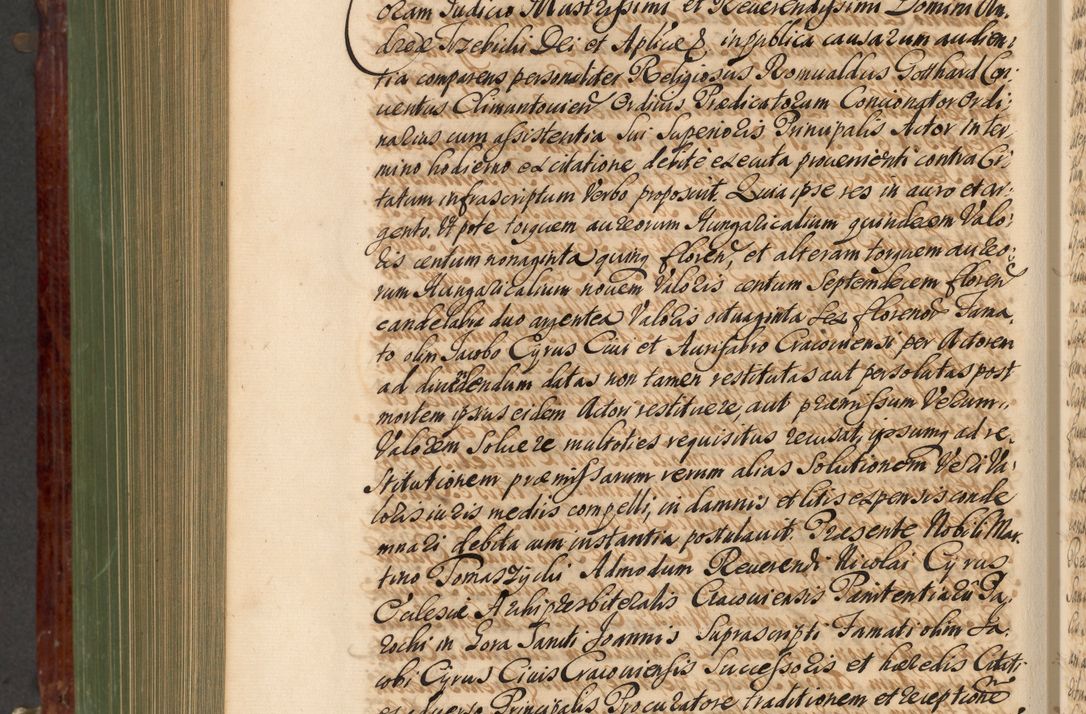 oram Judicio Illustrissimi et Reverendissimi Domini An,
dreæ Trzebicki Dei et Aplicæ &, in publica causarum audien:
tia comparens personaliter Religiosus Romualdus Gotthard Con:
uentus Climantouien Ordinis Prædicatorum Concionator Ordi:
narius cum assistentia sui Superioris Principalis Actor in ter,
mino hodierno ex citatione debite executa prouenienti contra Ci:
tatum infrascriptum Verbo proposuit. Quia ipse res in auro et ar:
gento. Vt pote torquem aureorum Hungaricalium quindecem Valo:
ris centum nonaginta quinq floren, et alteram torquem aureo:
rum Hungaricalium nouem Valoris centum Septemdecem floren
candelabra duo argentea Valoris octuaginta sex florenor Fama,
to olim Jacobo Cyrus Ciui et Aurifabro Cracouiensi per Actorem
ad diuidendum datas non tamen restitutas aut persolutas post
mortem ipsius eidem Actori restituere, aut præmissum Verum,,
Valorem Soluere multoties requisitus recusat, ipsumq ad re,
stitutionem præmissarum rerum alias Solutionem Veri Va:
loris iuris mediis compelli, in damnis et litis expensis conde
mnari debita cum instantia postulauit. Præsente Nobili Mar
tino Tomaszycki Admodum Reuerendi Nicolai Cyrus
Ecclesiæ Archipresbiteralis Cracouiensis Pœnitentiarii Pa,
rochi in Gora Sancti Joannis Suprascripti Famati olim Ja:
cobi Cyrus Ciuis Cracouiensis Successoris et hæredis Citati
ex aduerso Principalis Procuratore traditionem et receptione